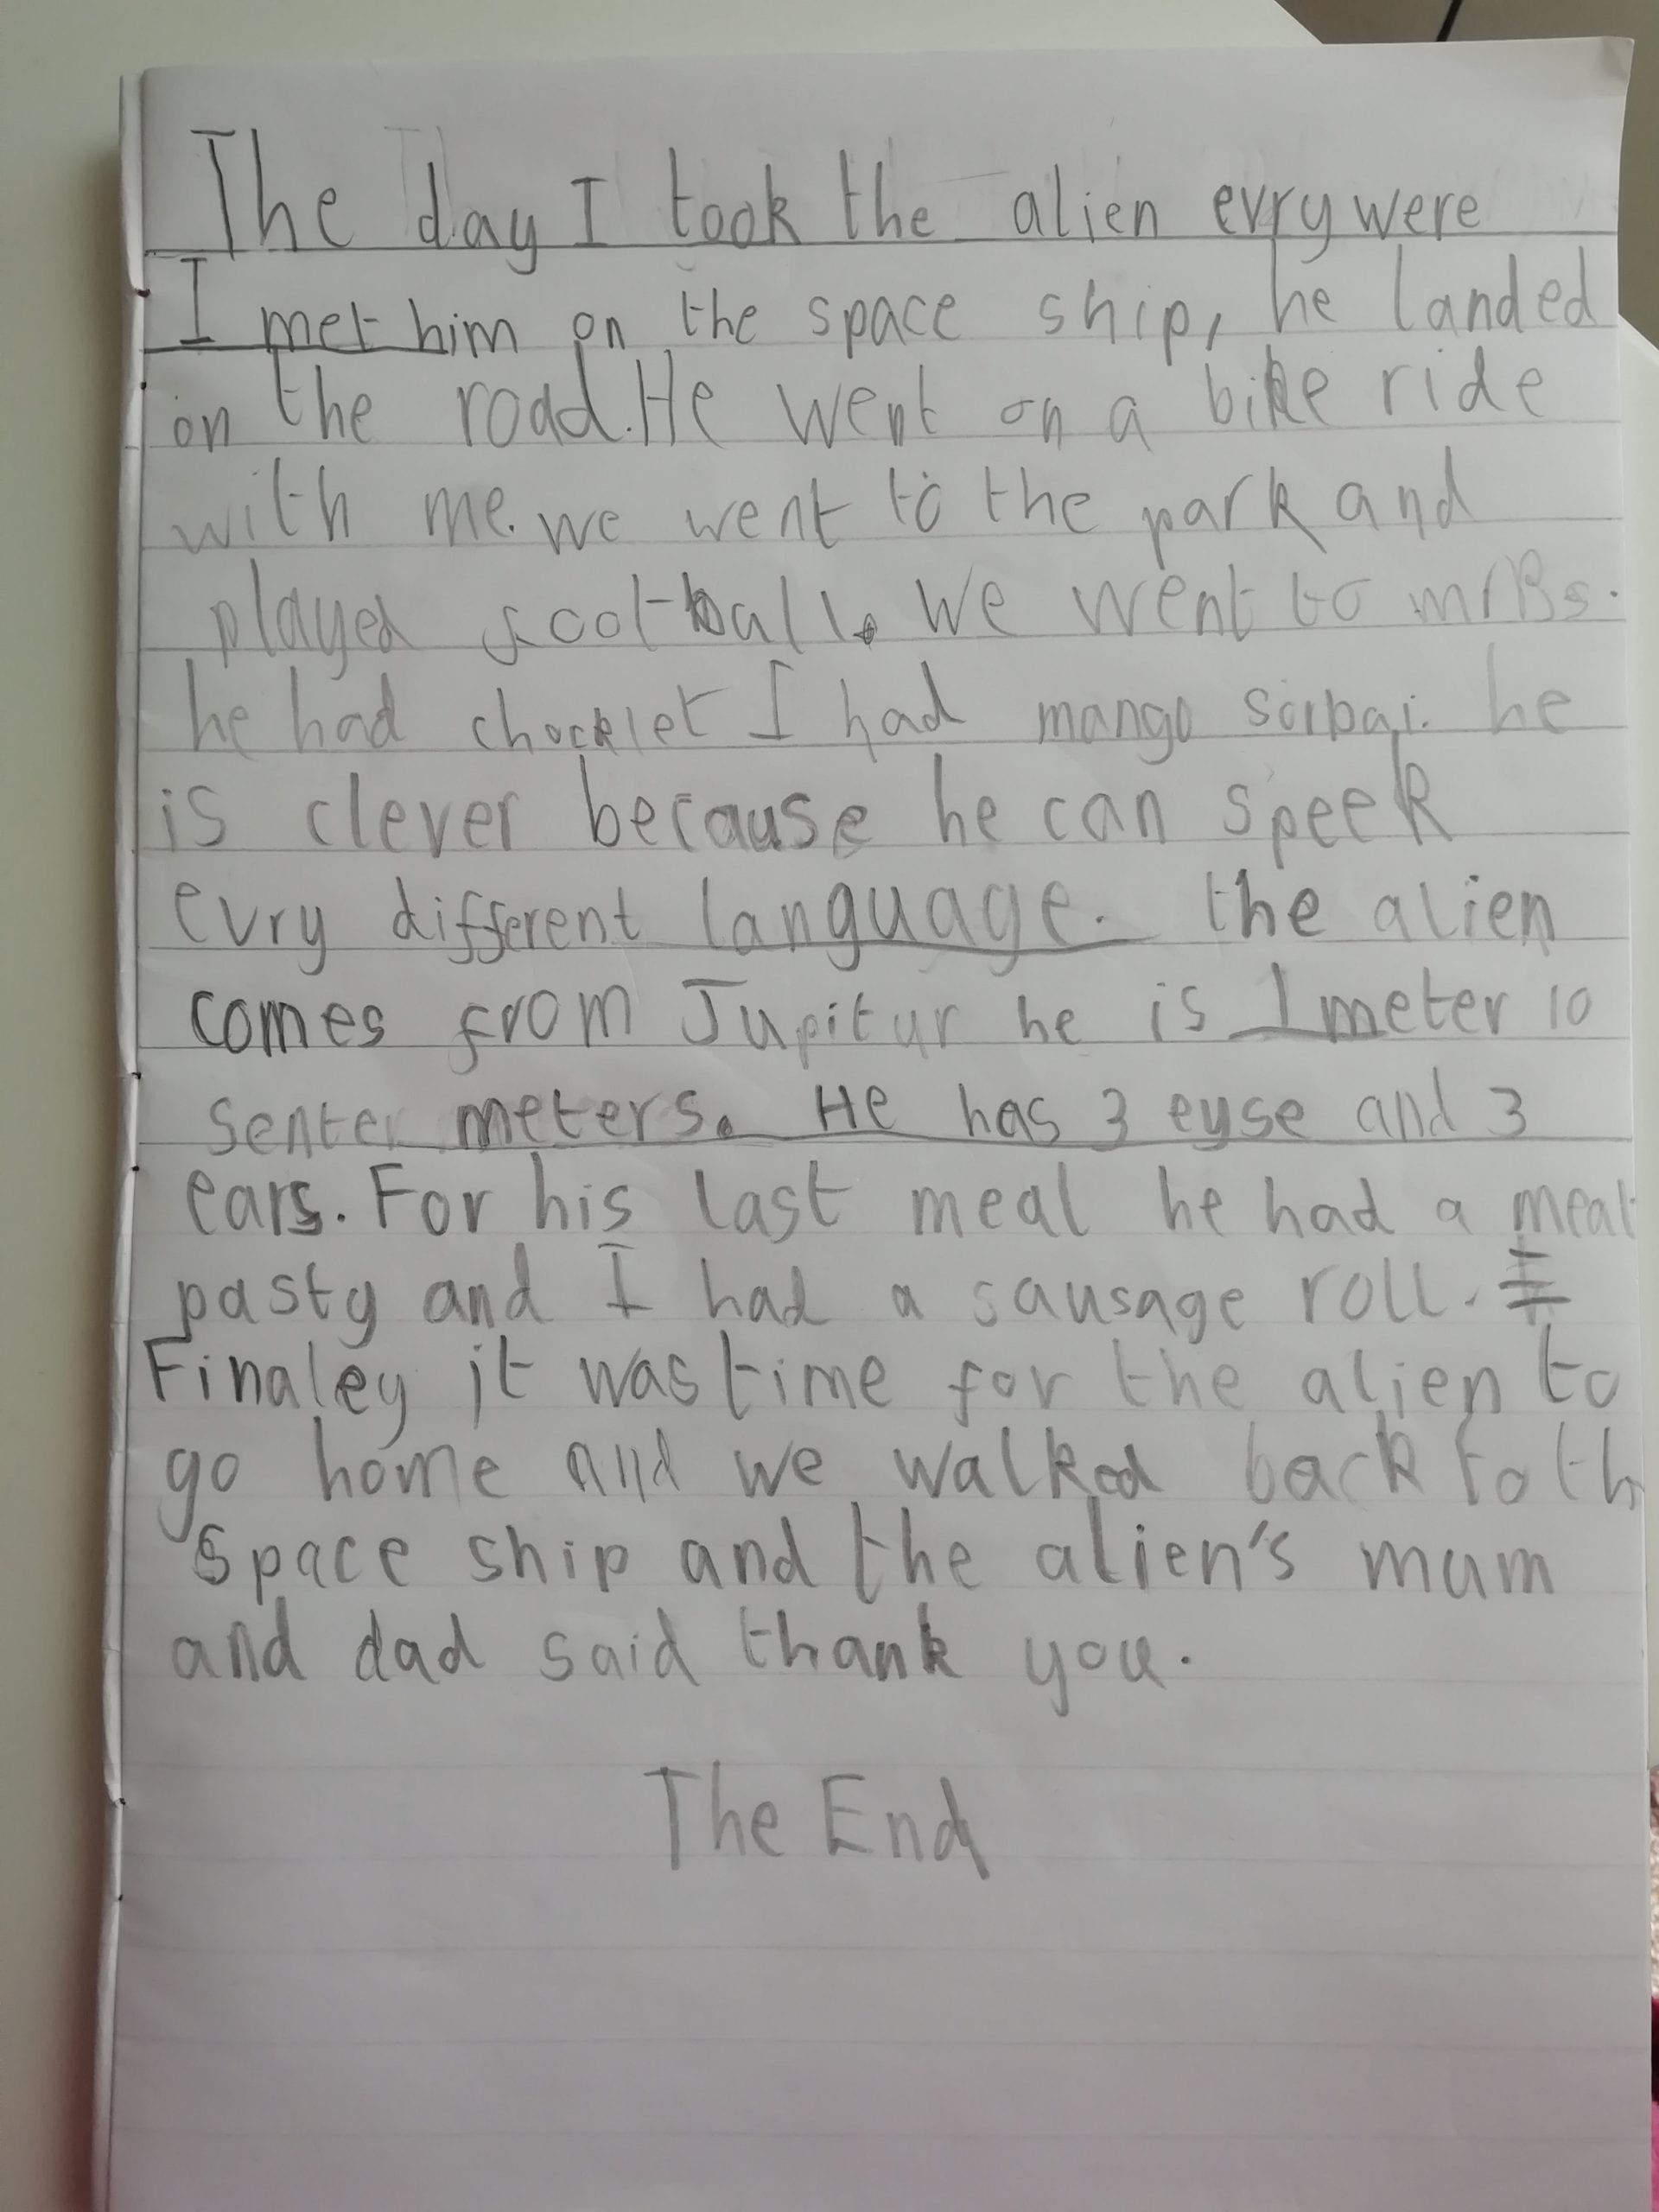 The day I took the alien evry were
I met him on the space ship, he landed
on the road. He went on a bike ride
with me. we went to the park and
played football. We went to mrBs.
he had chocklet I had mango sorbai. he
is clever because he can speek
evry different language. the alien
comes from Jupitur he is 1 meter 10
senter meters. He has 3 eyse and 3
ears. For his last meal he had a meat
pasty and I had a sausage roll.
Finaley it was time for the alien to
go home and we walked back to th
space ship and the alien's mum
and dad said thank you.
The End